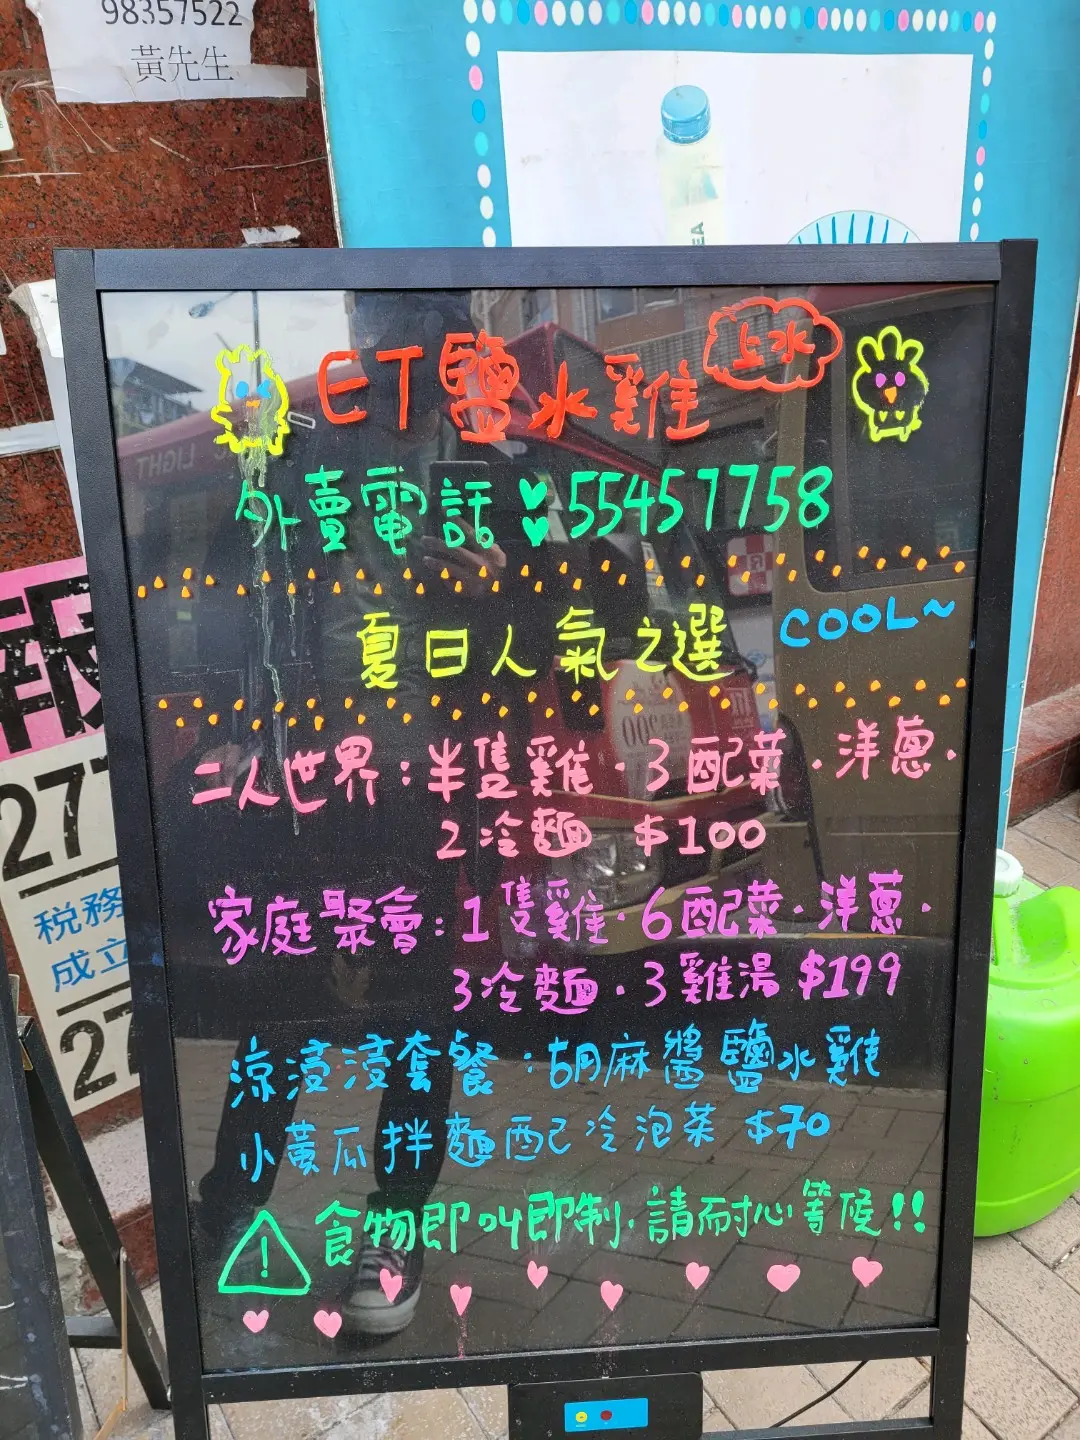 98357522
黃先生
ET鹽水雞
上水
外賣電話 55457758
夏日人氣之選
COOL~
二人世界：半隻雞·3配菜·洋蔥·
2冷麵 $100
家庭聚會：1隻雞·6配菜·洋蔥·
3冷麵·3雞湯 $199
涼浸浸套餐：胡麻醬鹽水雞
小黃瓜拌麵配冷泡茶 $70
!
食物即叫即制·請耐心等候!!
報
277
稅務
成立
27
LIGHT